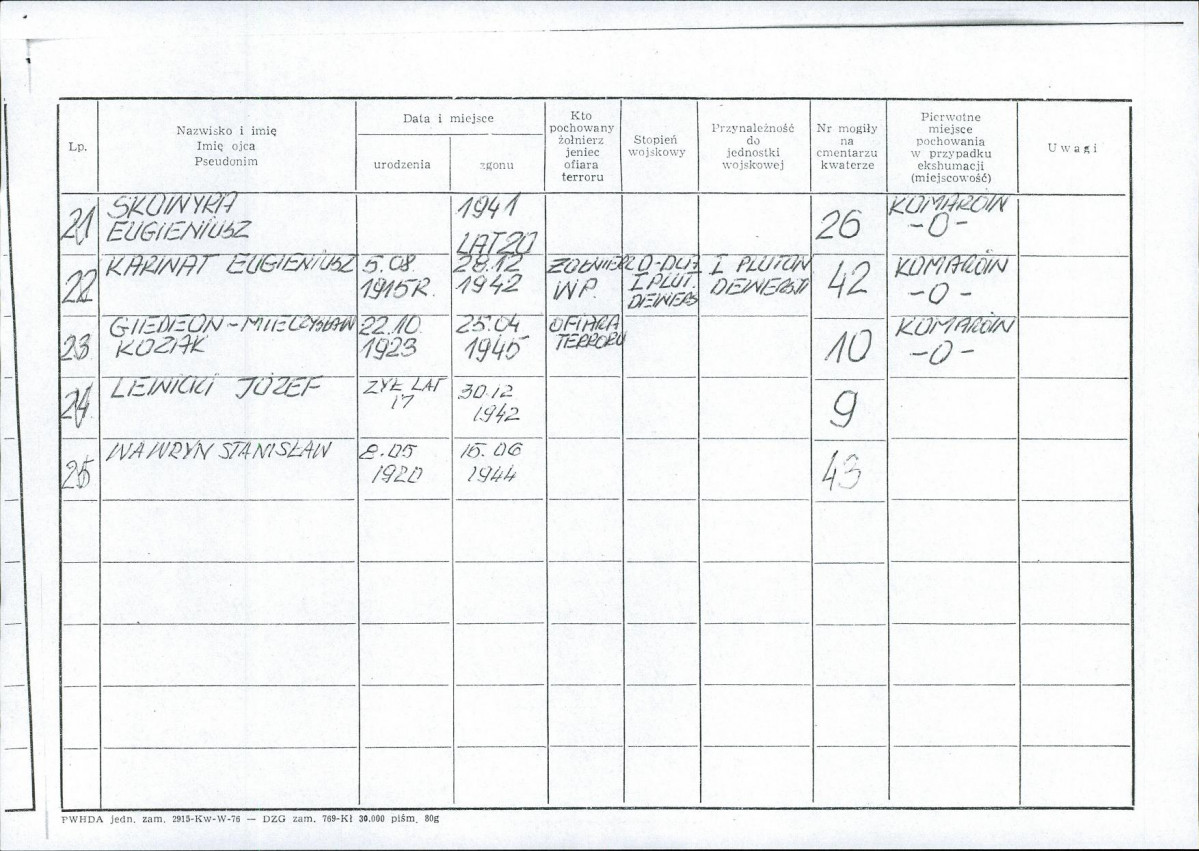 Lp.
Nazwisko i imię
Imię ojca
Pseudonim
Data i miejsce
urodzenia
zgonu
Kto
pochowany
żołnierz
jeniec
ofiara
terroru
Stopień
wojskowy
Przynależność
do
jednostki
wojskowej
Nr mogiły
na
cmentarzu
kwaterze
Pierwotne
miejsce
pochowania
w przypadku
ekshumacji
(miejscowość)
Uwagi
21
EUGIENIUSZ
1941
LAT 20
26
KOMARÓW
-0-
22
KARINAT EUGIENIUSZ
5.08.
1915R.
28.12
1942
ŻOŁNIERZ
W.P.
I PLUT.
I PLUTON
42
KOMARÓW
-0-
23
GIEDEON-MIECZYSŁAW
KOZIAK
22.10.
1923
25.04
1945
OFIARA
TERRORU
10
KOMARÓW
-0-
24
JÓZEF
ŻYŁ LAT
17
30.12
1942
9
25
WAWRYN STANISŁAW
8.05
1920
15.06
1944
43
PWHDA jedn. zam. 2915-Kw-W-76 — DZG zam. 769-Kł 30.000 piśm. 80g